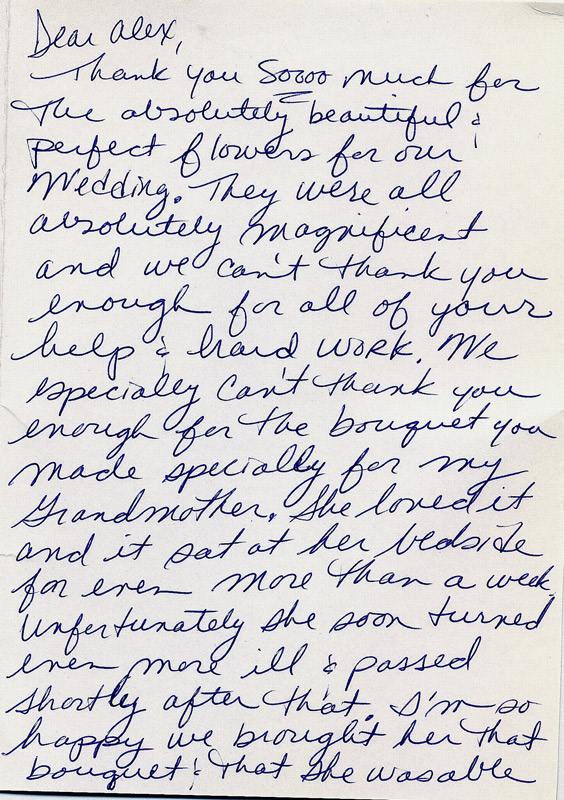 Dear Alex,
Thank you Soooo much for
the absolutely beautiful &
perfect flowers for our
Wedding. They were all
absolutely magnificent
and we can't thank you
enough for all of your
help & hard work. We
especially can't thank you
enough for the bouquet you
made specially for my
Grandmother. She loved it
and it sat at her bedside
for even more than a week.
Unfortunately she soon turned
even more ill & passed
shortly after that. I'm so
happy we brought her that
bouquet & that she was able